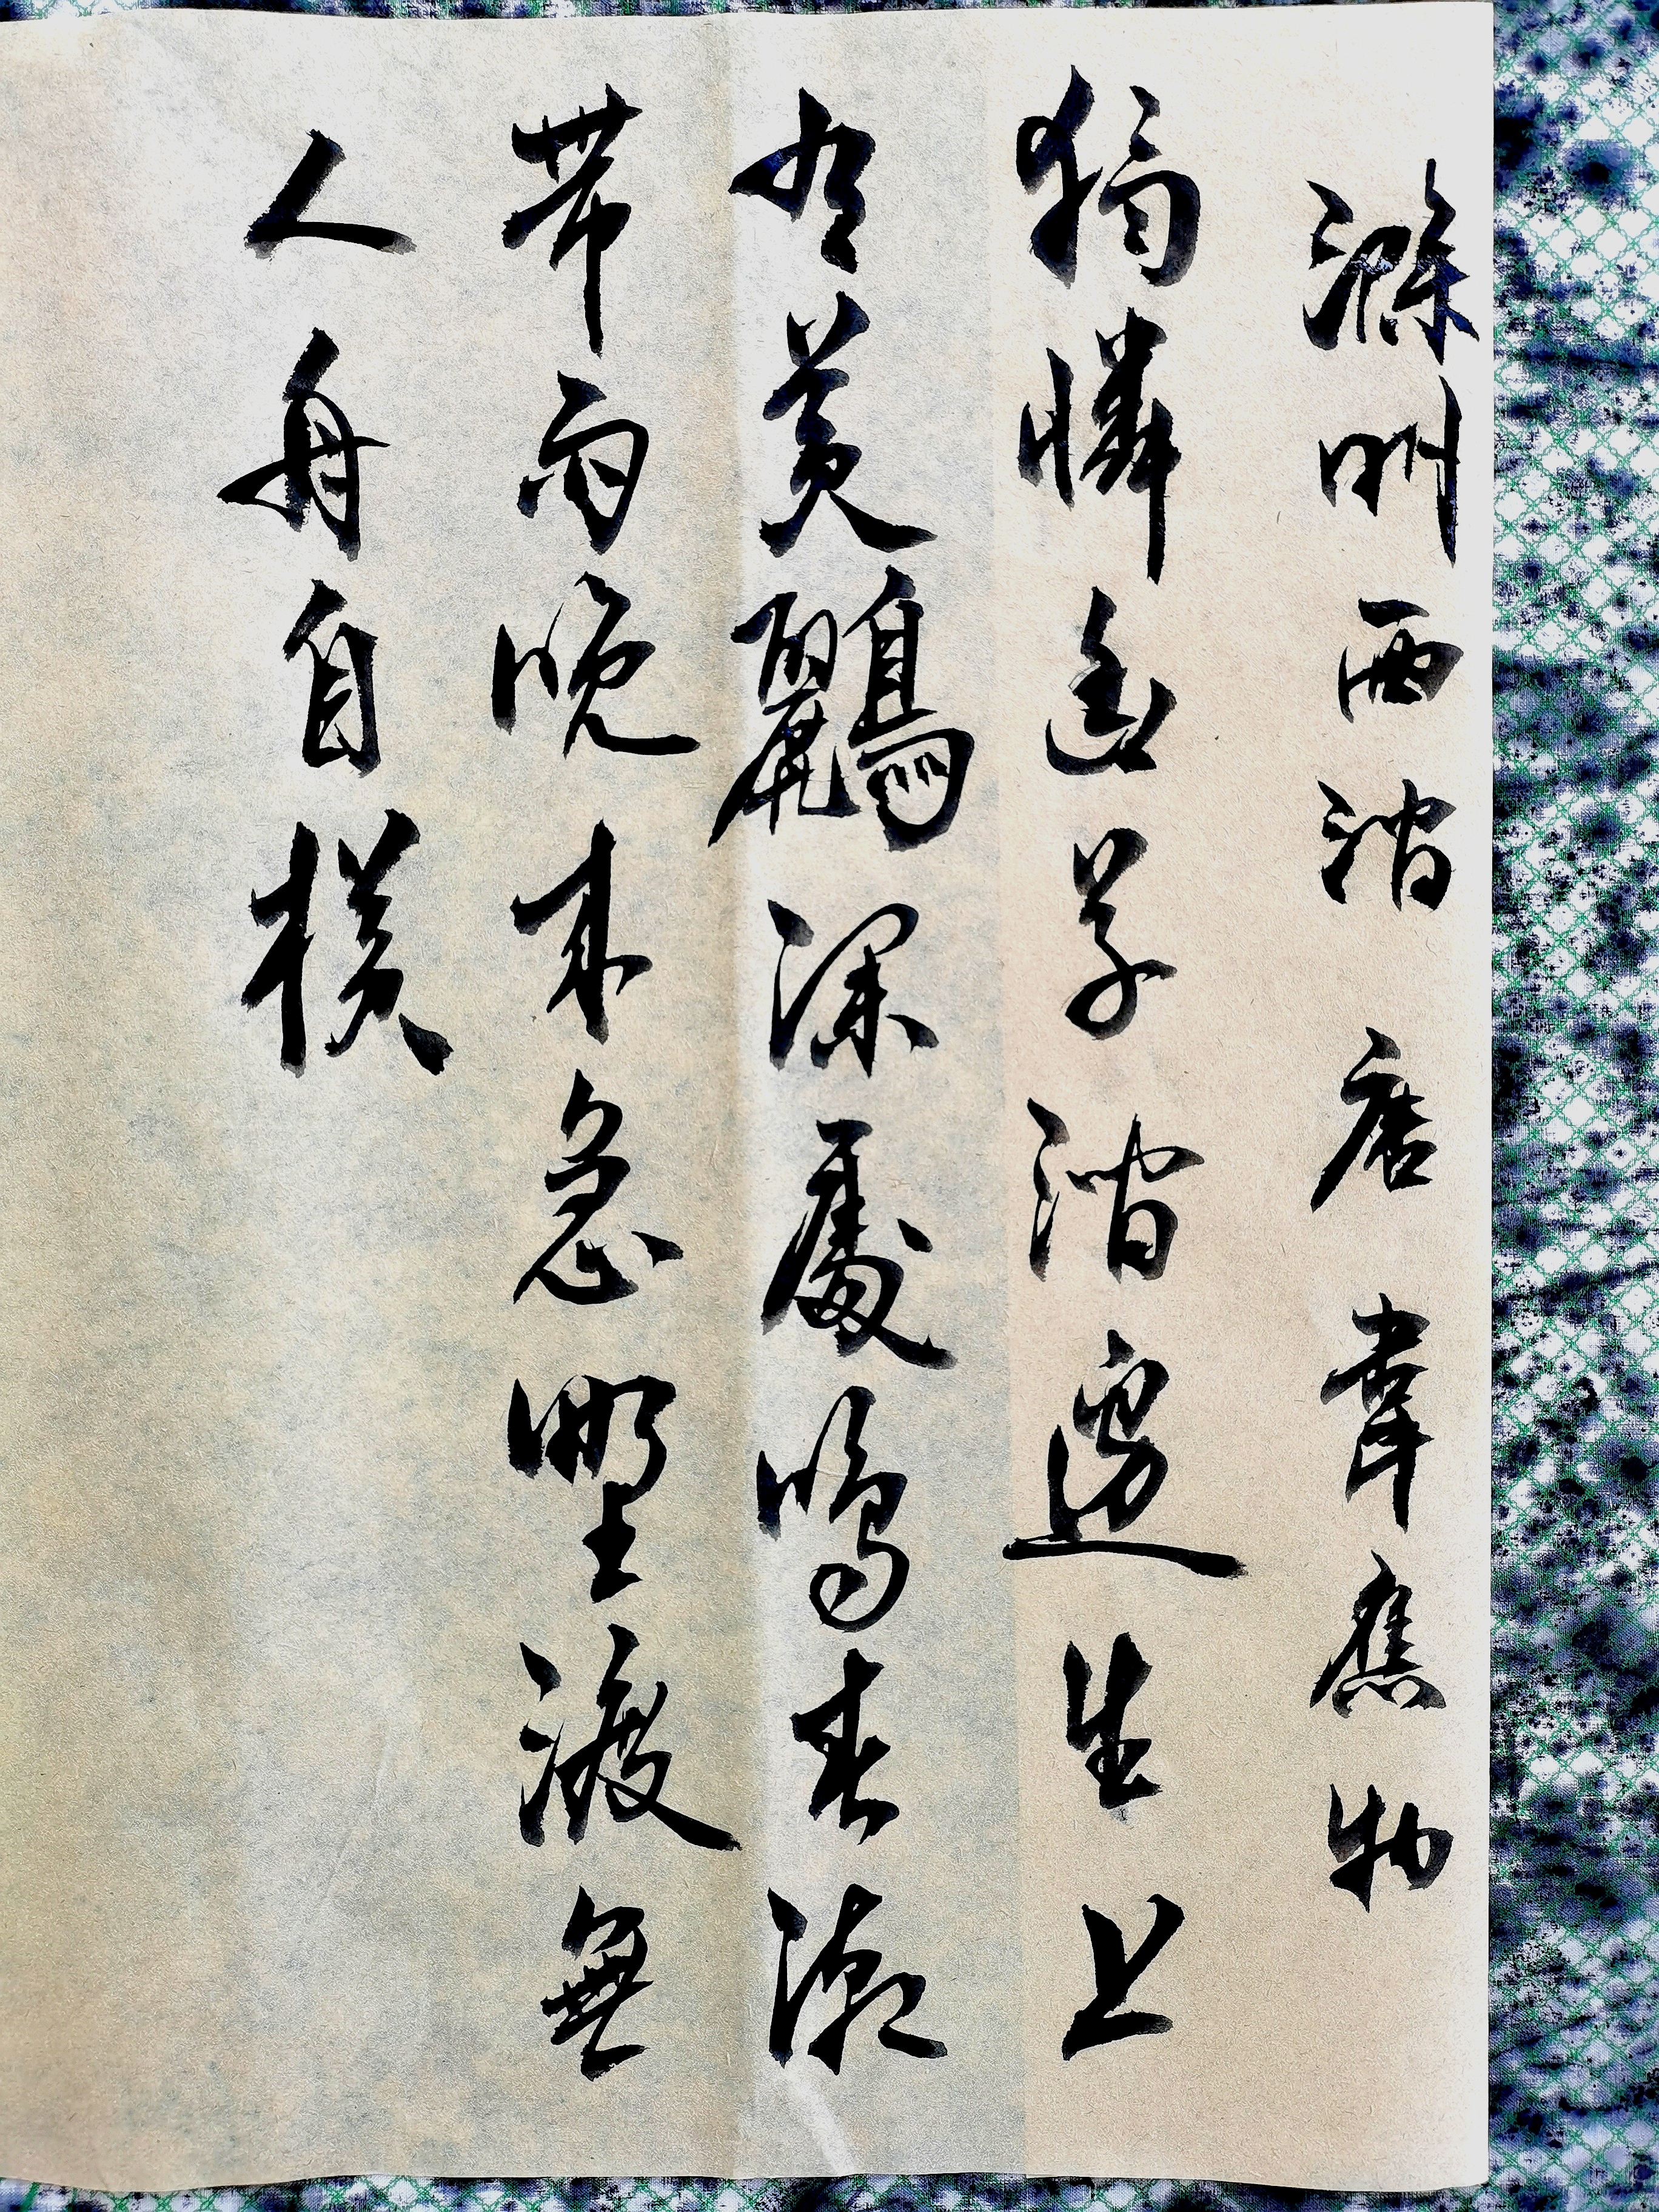 滁州西澗 唐 韋應物
獨憐幽草澗邊生上
有黃鸝深處鳴春潮
帶雨晚來急野渡無
人舟自橫